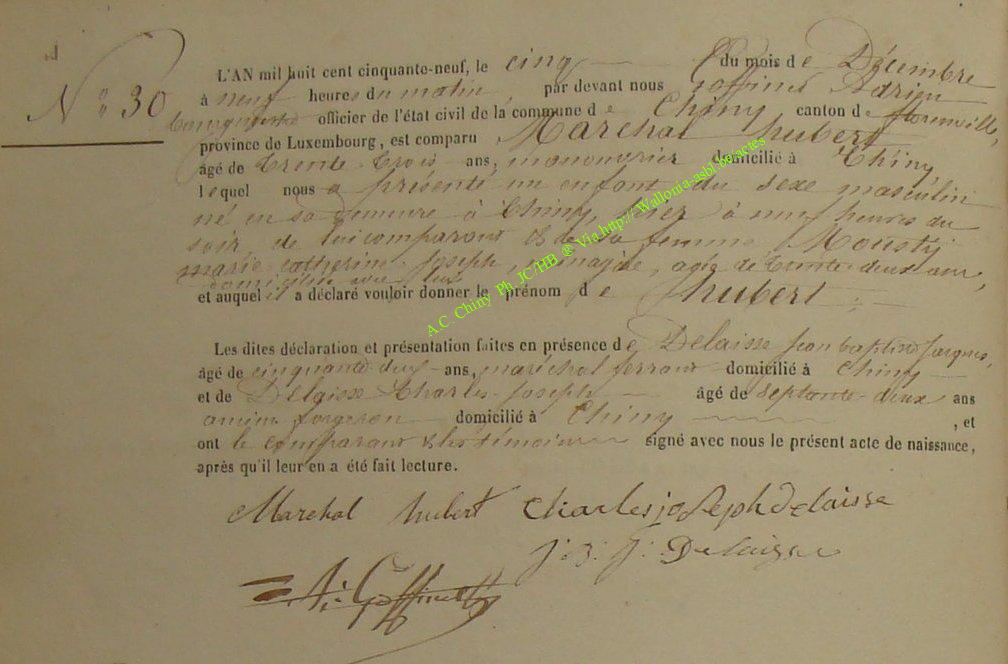 N° 30
L'AN mil huit cent cinquante-neuf, le cinq du mois de Décembre
à neuf heures du matin, par devant nous Goffinet Adrien
Bourgmestre officier de l'état civil de la commune de Chiny canton de florenville,
province de Luxembourg, est comparu Maréchal hubert
âgé de trente-trois ans, manouvrier domicilié à Chiny
lequel nous a présenté un enfant du sexe masculin
né en sa demeure à Chiny, hier à neuf heures du
soir, de lui comparant & de sa femme Mousty
marie catherine Joseph, ménagère, agée de trente-deux ans,
domiciliée avec lui
et auquel il a déclaré vouloir donner le prénom de hubert
Les dites déclaration et présentation faites en présence de Delaisse Jean baptiste Jacques,
âgé de cinquante deux ans, maréchal ferrant domicilié à Chiny
et de Delaisse Charles Joseph âgé de septante-deux ans
ancien forgeron domicilié à Chiny, et
ont le comparant & les témoins signé avec nous le présent acte de naissance,
après qu'il leur en a été fait lecture.
Marechal hubert Charles joseph Delaisse
J. B. J. Delaisse
A. Goffinet
A.C. Chiny Ph JC/HB ® Via.http://Wallonia-asbl.be/actes